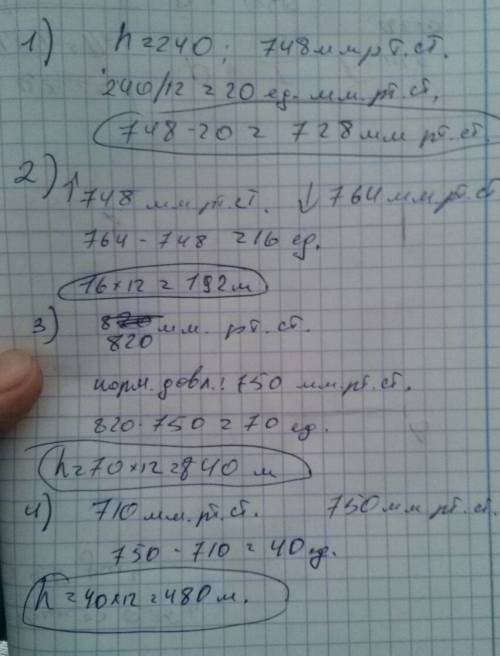 1) h = 240; 748 мм рт. ст.
240/12 = 20 ед. мм. рт. ст.
748 - 20 = 728 мм рт. ст.
2) ↑ 748 мм. рт. ст. ↓ 764 мм. рт. ст
764 - 748 = 16 ед.
16 × 12 = 192 м
3) 820 мм. рт. ст.
норм. давл.: 750 мм. рт. ст.
820 - 750 = 70 ед.
h = 70 × 12 = 840 м
4) 710 мм. рт. ст. 750 мм рт. ст.
750 - 710 = 40 ед.
h = 40 × 12 = 480 м.